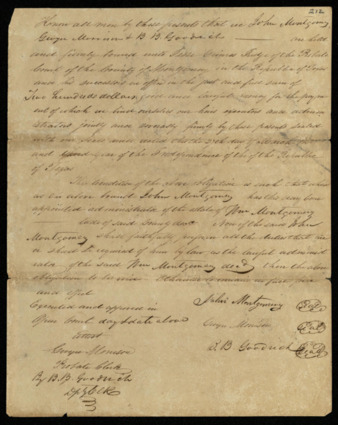 212
Know all men by these presents that we John Montgomery
George Morrison & B B Goodrich are held
and firmly bound unto Judge of the Probate
Court of the County of Montgomery in the Republic of Texas
and his successors in office in the just and full sum of
Five hundred dollars, lawful money for the payment
of which we bind ourselves our heirs executors and administrators
jointly and severally firmly by these presents sealed
with our seals and dated this the day of
and year of the Independence of the Republic
of Texas
The condition of the above obligation is such that whereas
the above bound John Montgomery has this day been
appointed administrator of the estate of Wm Montgomery
late of said County Now if the said John
Montgomery shall perform the duties that are
required of him by law as the lawful administrator
of the said Wm Montgomery decd then the above
obligation to be void otherwise to remain in full force
and effect
Executed and approved in John Montgomery
Open Court day & date above George Morrison
Attest B. B. Goodrich
George Morrison
Probate Clerk
By B. B. Goodrich
Dpty Clk